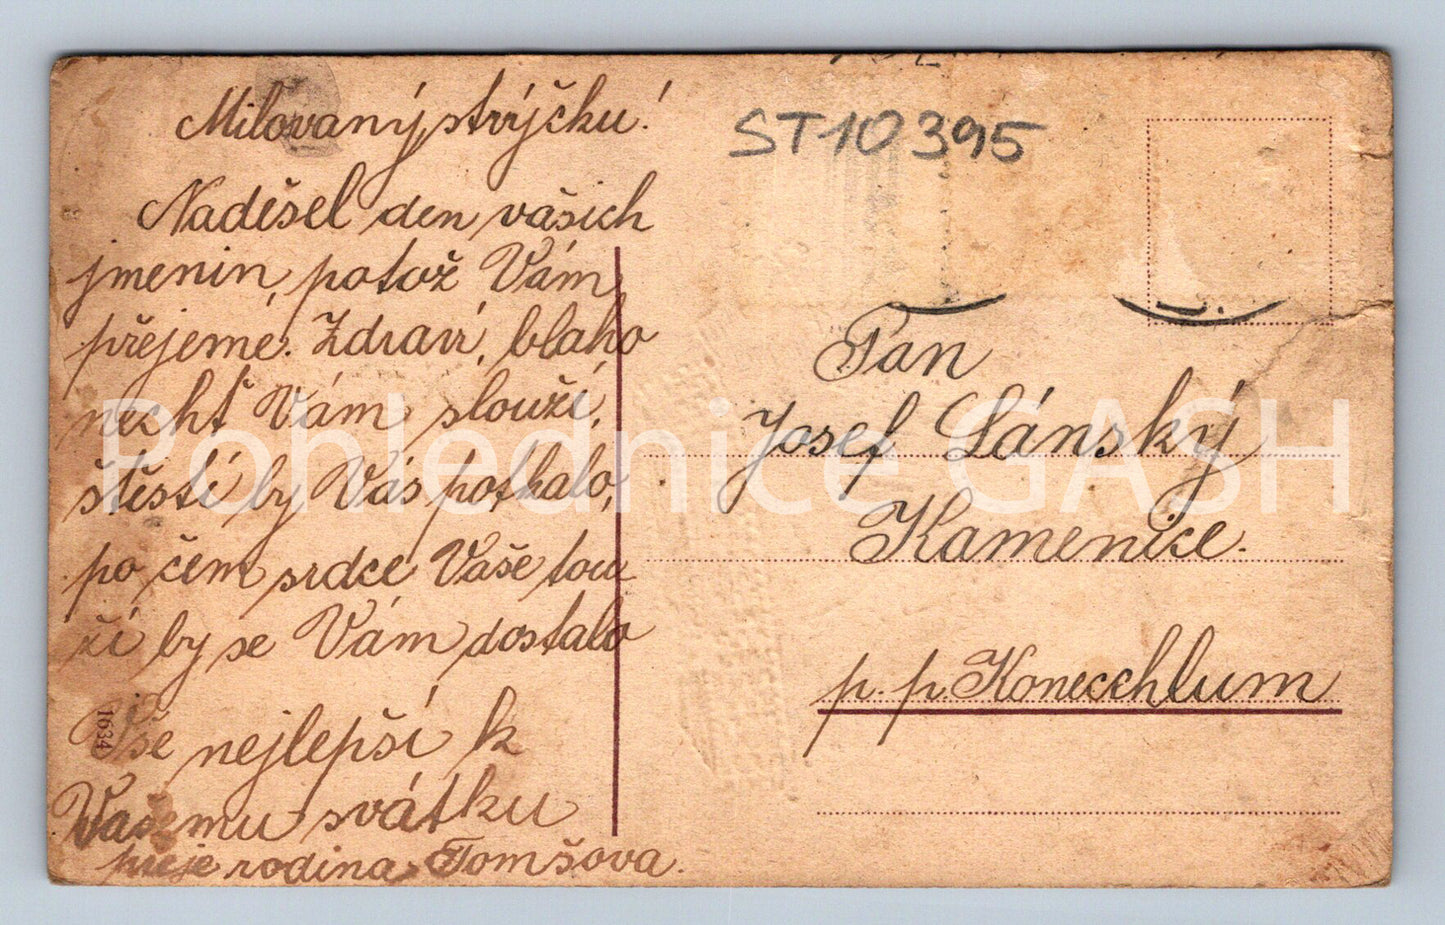 Milovaný strýčku!
Naděšel den vašich
jmenin, potož Vám
přejeme: Zdraví, blaho
nechť Vám slouží,
štěstí by Vás potkalo,
po čem srdce Vaše tou
ží by se Vám dostalo
Vše nejlepší k
Vašemu svátku
přeje rodina Tomšova.
1634
ST10395
Pan
Josef Lánský
Kamenice.
p. p. Konecchlum
Pohlednice GASH